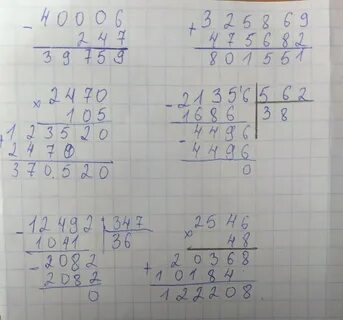 - 40006
247
39759
+ 325869
475682
801551
× 2470
105
+ 123520
2470
370.520
- 21356 | 562
1686 | 38
- 4496
4496
0
- 12492 | 347
1041 | 36
- 2082
2082
0
× 2546
48
+ 20368
10184
122208.